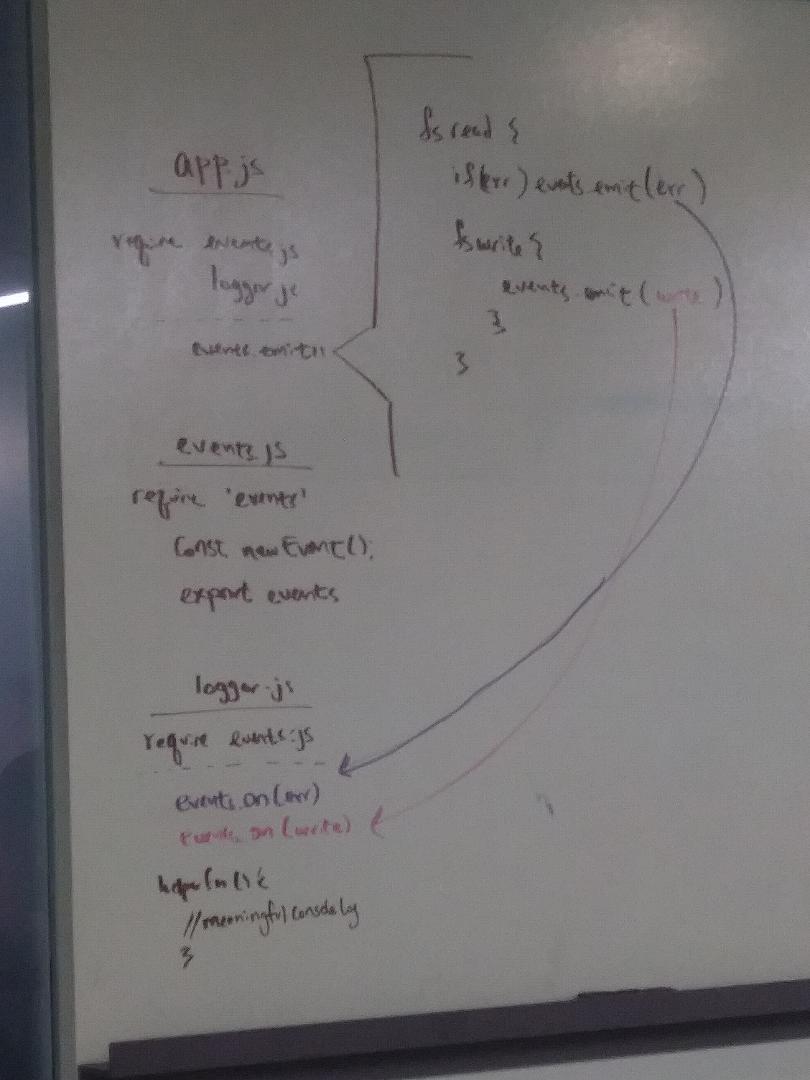 app.js
require events.js
logger.js
events.emit()
fs read {
if(err) events.emit(err)
fs write {
events.emit(write)
}
}
events.js
require 'events'
const new Event();
export events
logger.js
require events.js
events.on(err)
events.on(write)
helper fn () {
//meaningful console log
}